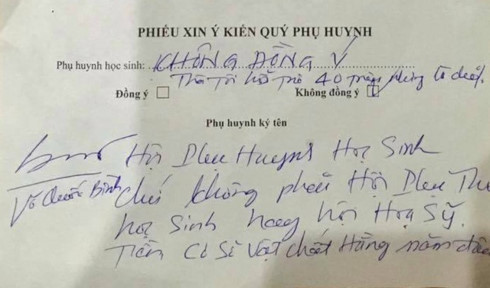 PHIẾU XIN Ý KIẾN QUÝ PHỤ HUYNH
Phụ huynh học sinh: KHÔNG ĐỒNG Ý
hỗ trợ 40
Đồng ý Không đồng ý
Phụ huynh ký tên
Hội Phụ Huynh Học Sinh
chứ không phải Hội Phụ
học Sinh hay hội Hoạ Sỹ.
Tiền Cơ Sở Vật chất Hằng năm đâu